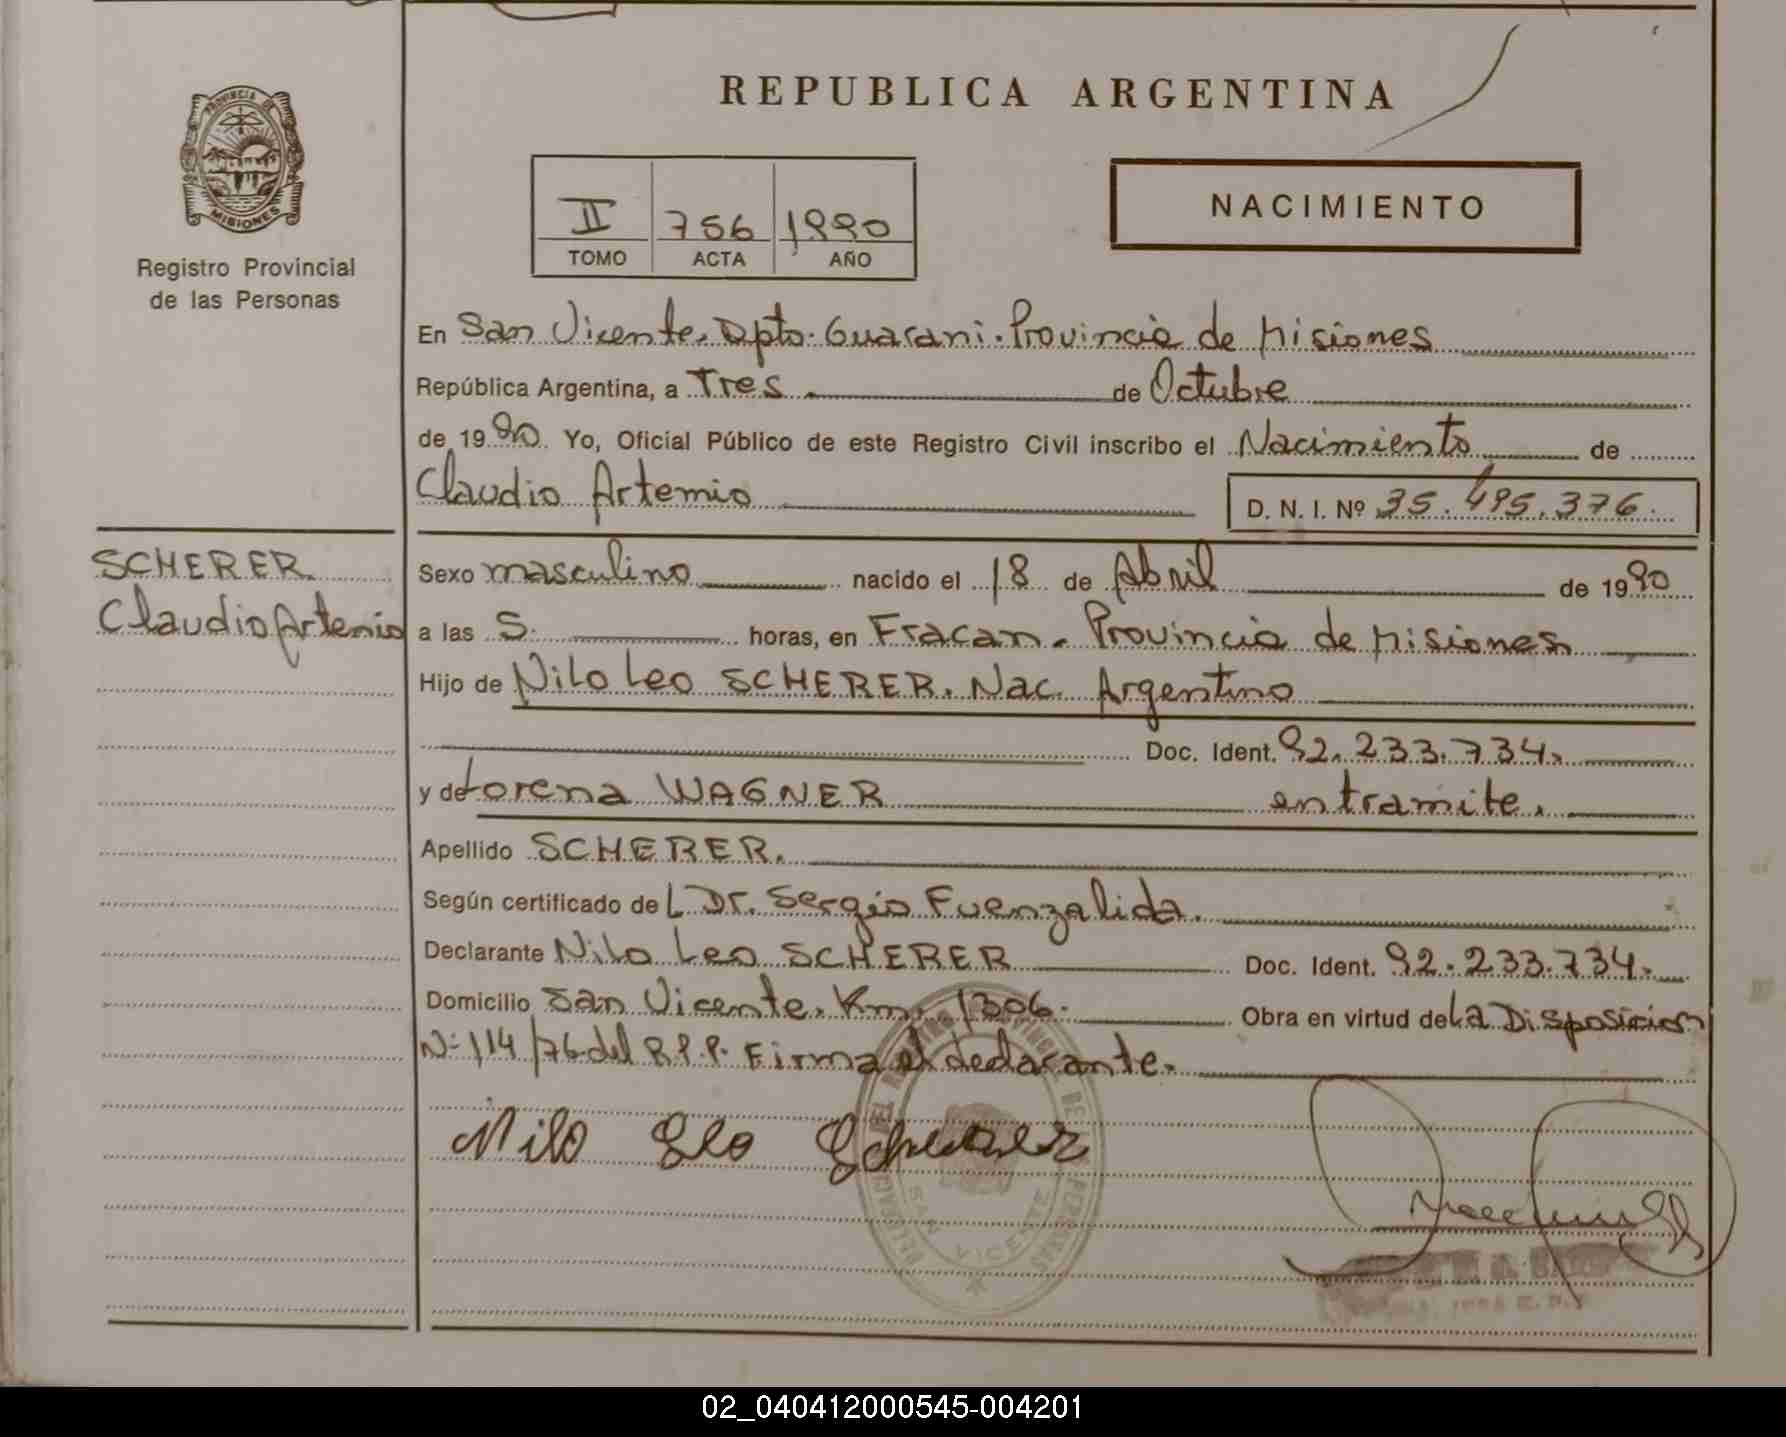 REPUBLICA ARGENTINA
PROVINCIA DE
MISIONES
Registro Provincial
de las Personas
II 756 1990
TOMO ACTA AÑO
NACIMIENTO
En San Vicente. Dpto. Guarani. Provincia de Misiones
República Argentina, a Tres de Octubre
de 1990. Yo, Oficial Público de este Registro Civil inscribo el Nacimiento de
Claudio Artemio D. N. I. Nº 35.495.376.
SCHERER.
Claudio Artemio
Sexo masculino nacido el 18 de Abril de 1990
a las 5. horas, en Fracan. Provincia de Misiones
Hijo de Nilo Leo SCHERER. Nac. Argentino
Doc. Ident. 92.233.734.
y de Lorena WAGNER en tramite.
Apellido SCHERER.
Según certificado del Dr. Sergio Fuenzalida.
Declarante Nilo Leo SCHERER Doc. Ident. 92.233.734.
Domicilio San Vicente. Km. 1306. Obra en virtud de La Disposicion
Nº 114/76 del R.P.P. Firma el declarante.
Nilo Leo Scherer
SAN VICENTE
02_040412000545-004201